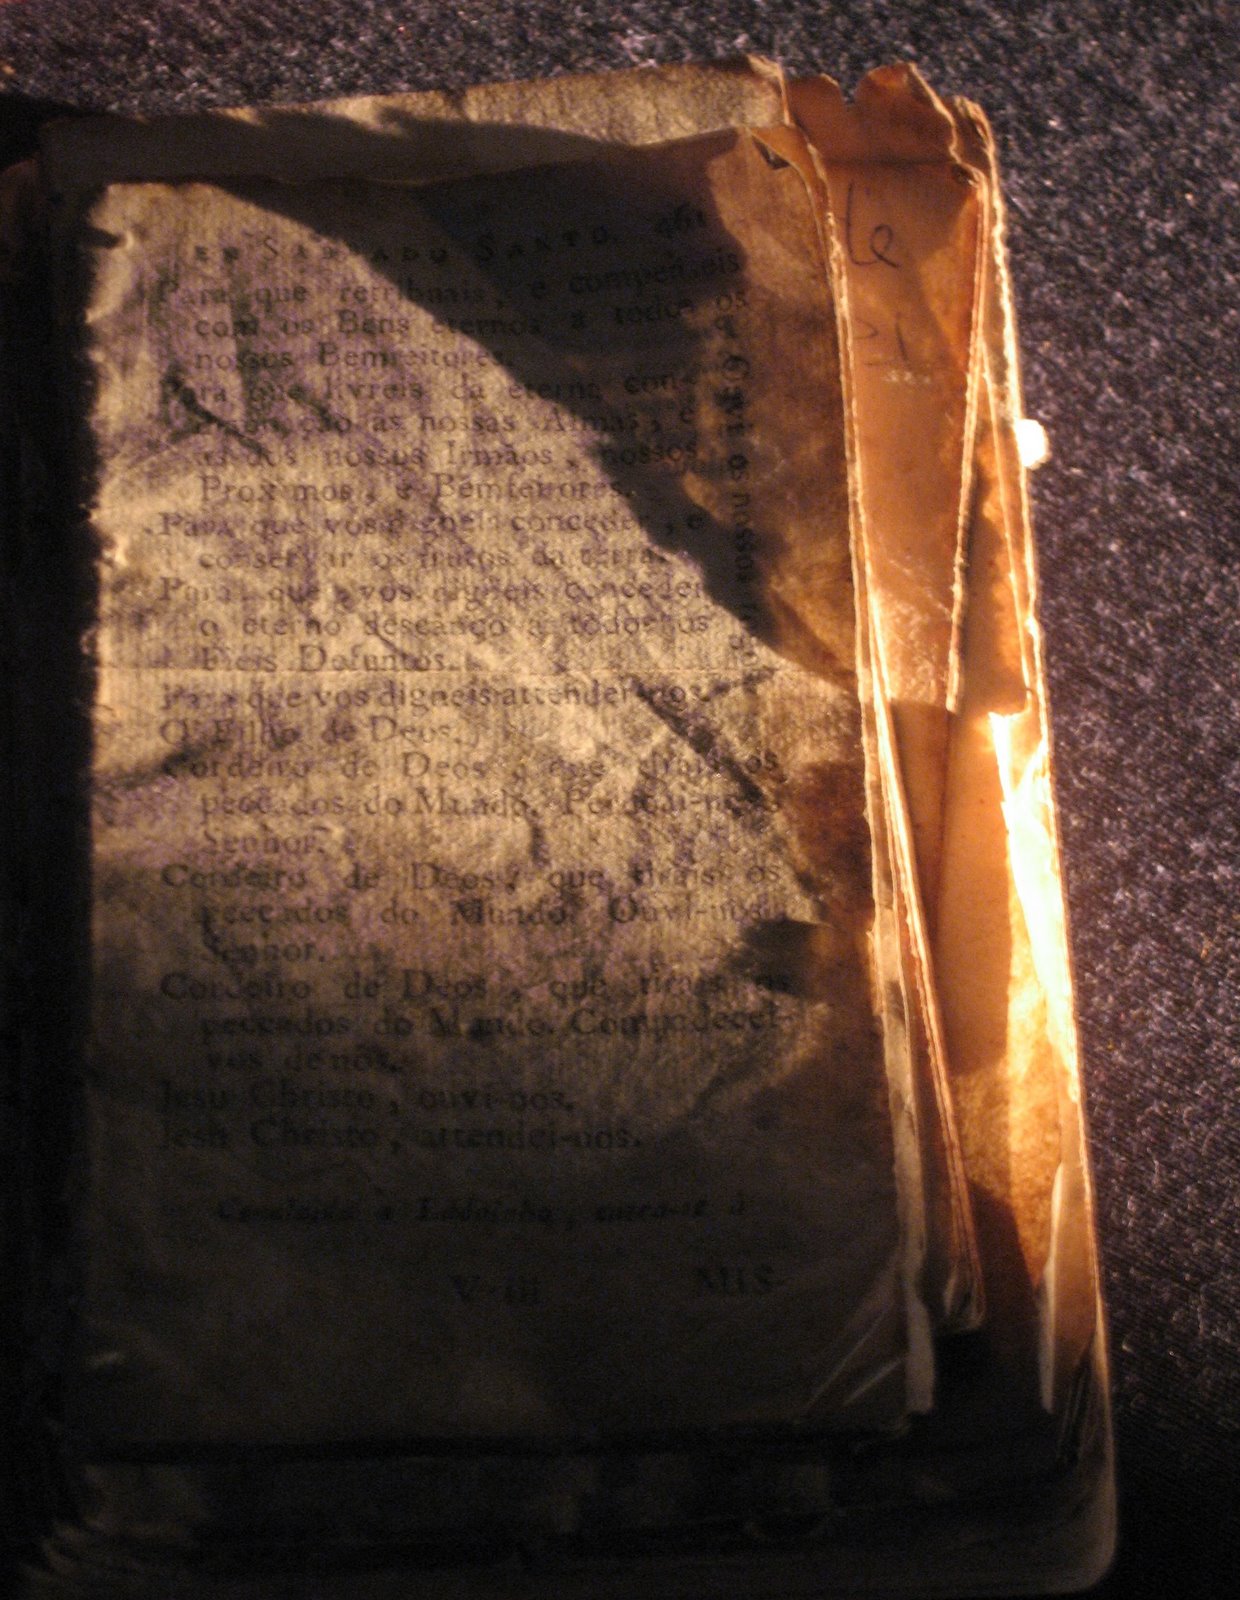 SABBADO SANTO. 461
Para que retribuais, e compenseis
com os Bens eternos a todos os
nossos Bemfeitores.
Para que livreis da eterna con-
ção as nossas Almas, e
as dos nossos Irmãos, nossos
Proximos, e Bemfeitores.
Para que vos digneis conceder, e
conservar os frutos da terra.
Para que vos digneis conceder
o eterno descanço a todos os
Fieis Defuntos.
Para que vos digneis attender-nos.
O' Filho de Deos.
Cordeiro de Deos, que tirais os
peccados do Mundo. Perdoai-nos
Senhor.
Cordeiro de Deos, que tirais os
peccados do Mundo. Ouvi-nos
Senhor.
Cordeiro de Deos, que tirais os
peccados do Mundo. Compadecei-
vos de nós.
Jesu Christo, ouvi-nos.
Jesu Christo, attendei-nos.
a Ladainha,
V iii MIS-
le